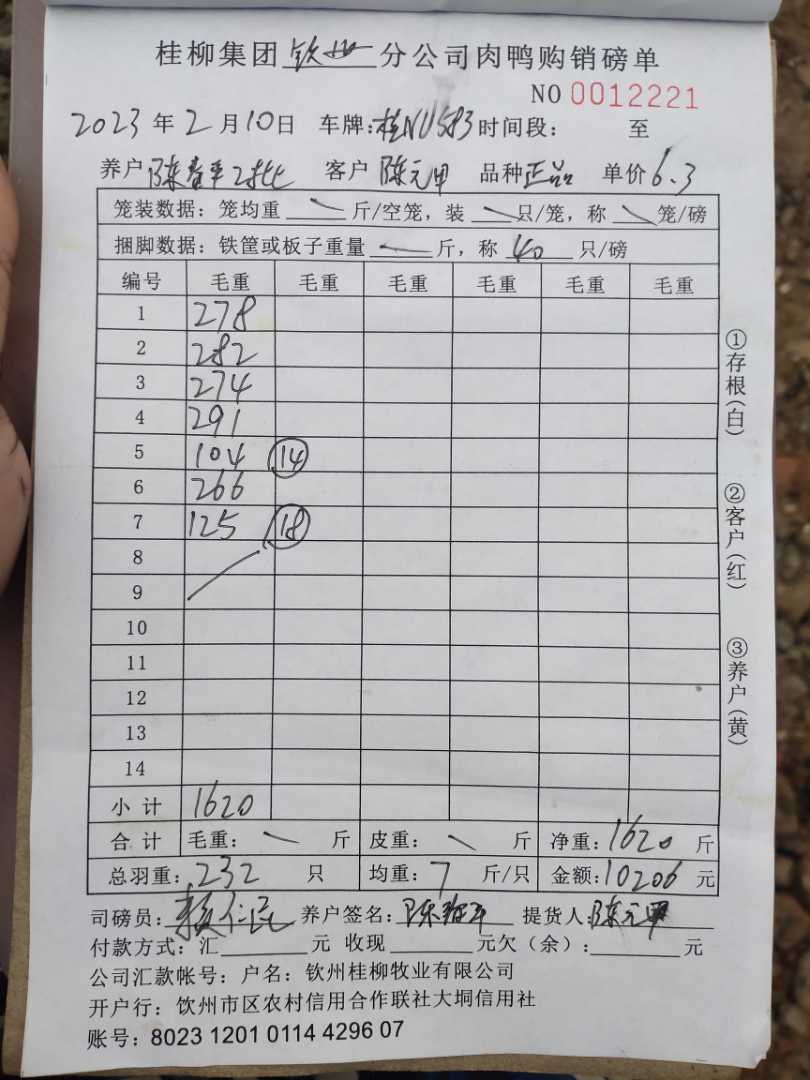 桂柳集团钦州分公司肉鸭购销磅单
NO 0012221
2023年2月10日 车牌:桂NU583 时间段: 至
养户 陈春平2批 客户 陈元甲 品种 正品 单价 6.3
笼装数据：笼均重 斤/空笼，装 只/笼，称 笼/磅
捆脚数据：铁筐或板子重量 斤，称 40 只/磅
编号 毛重 毛重 毛重 毛重 毛重 毛重
1 278
2 282
3 274
4 291
5 104 14
6 266
7 125 18
8
9
10
11
12
13
14
小计 1620
合计 毛重： 斤 皮重： 斤 净重：1620 斤
总羽重：232 只 均重：7 斤/只 金额:10206 元
司磅员: 养户签名: 提货人:陈元甲
付款方式：汇 元 收现 元欠（余）: 元
公司汇款帐号：户名：钦州桂柳牧业有限公司
开户行：饮州市区农村信用合作联社大垌信用社
账号：8023 1201 0114 4296 07
①存根（白）
②客户（红）
③养户（黄）